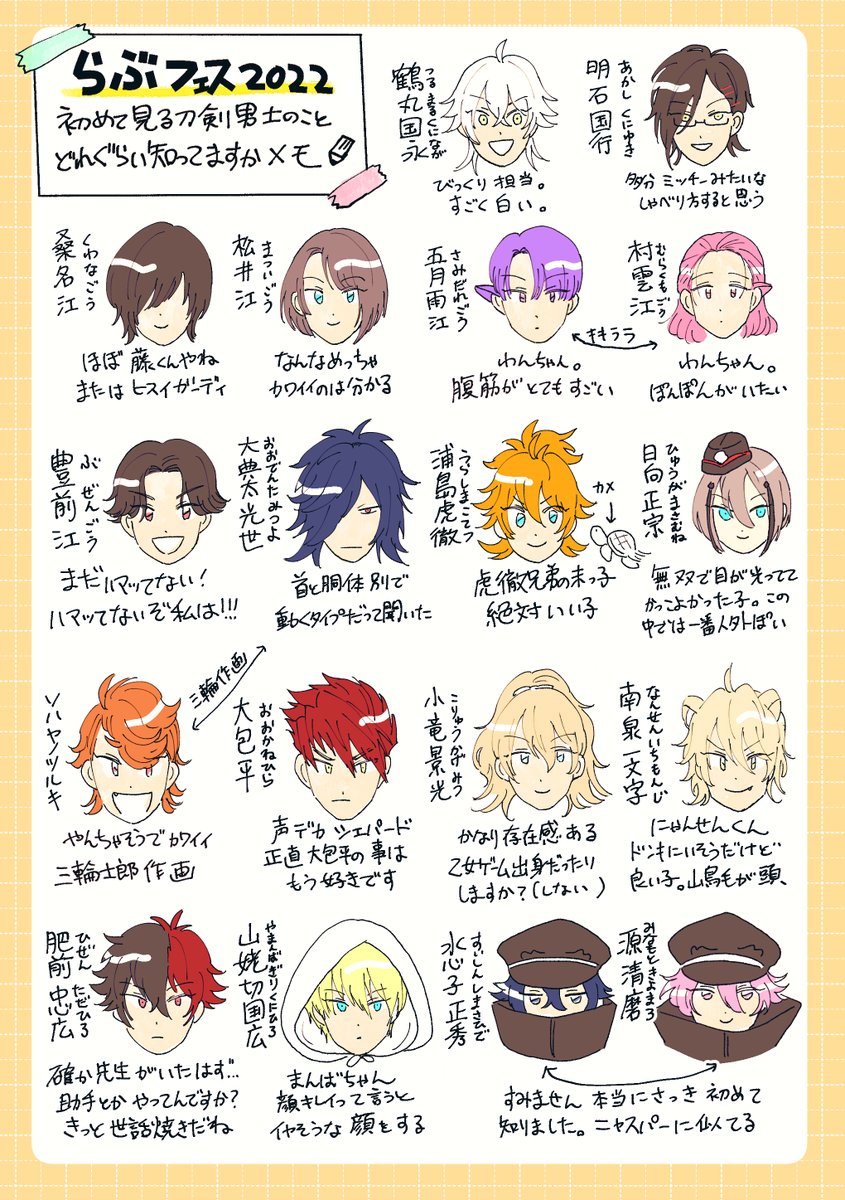 らぶフェス2022
初めて見る刀剣男士のこと
どれぐらい知ってますかメモ
鶴丸国永
つるまるくになが
びっくり担当。
すごく白い。
明石国行
あかしくにゆき
多分ミッチーみたいな
しゃべり方すると思う
桑名江
くわなごう
ほぼ藤くんやね
またはヒスイガーディ
松井江
まついごう
なんなめっちゃ
カワイイのは分かる
五月雨江
さみだれごう
わんちゃん。
腹筋がとてもすごい
村雲江
むらくもごう
わんちゃん。
ぽんぽんがいたい
豊前江
ぶぜんごう
まだハマッてない!
ハマッてないぞ私は!!!
大典太光世
おおでんたみつよ
首と胴体別で
動くタイプだって聞いた
浦島虎徹
うらしまこてつ
カメ
虎徹兄弟の末っ子
絶対いい子
日向正宗
ひゅうがまさむね
無双で目が光ってて
かっこよかった子。この
中では一番人外ぽい
三輪作画
ソハヤノツルキ
やんちゃそうでカワイイ
三輪士郎作画
大包平
おおかねひら
声デカシェパード
正直大包平の事は
もう好きです
小竜景光
こりゅうかげみつ
かなり存在感ある
乙女ゲーム出身だったり
しますか?(しない)
南泉一文字
なんせんいちもんじ
にゃんせんくん
ドンキにいそうだけど
良い子。山鳥毛が頭、
肥前忠広
ひぜんただひろ
確か先生がいたはず…
助手とかやってんですか?
きっと世話焼きだね
山姥切国広
やまんばぎりくにひろ
まんばちゃん
顔キレイって言うと
イヤそうな顔をする
水心子正秀
すいしんしまさひで
源清磨
みなもときよまろ
すみません本当にさっき初めて
知りました。ニャスパーに似てる